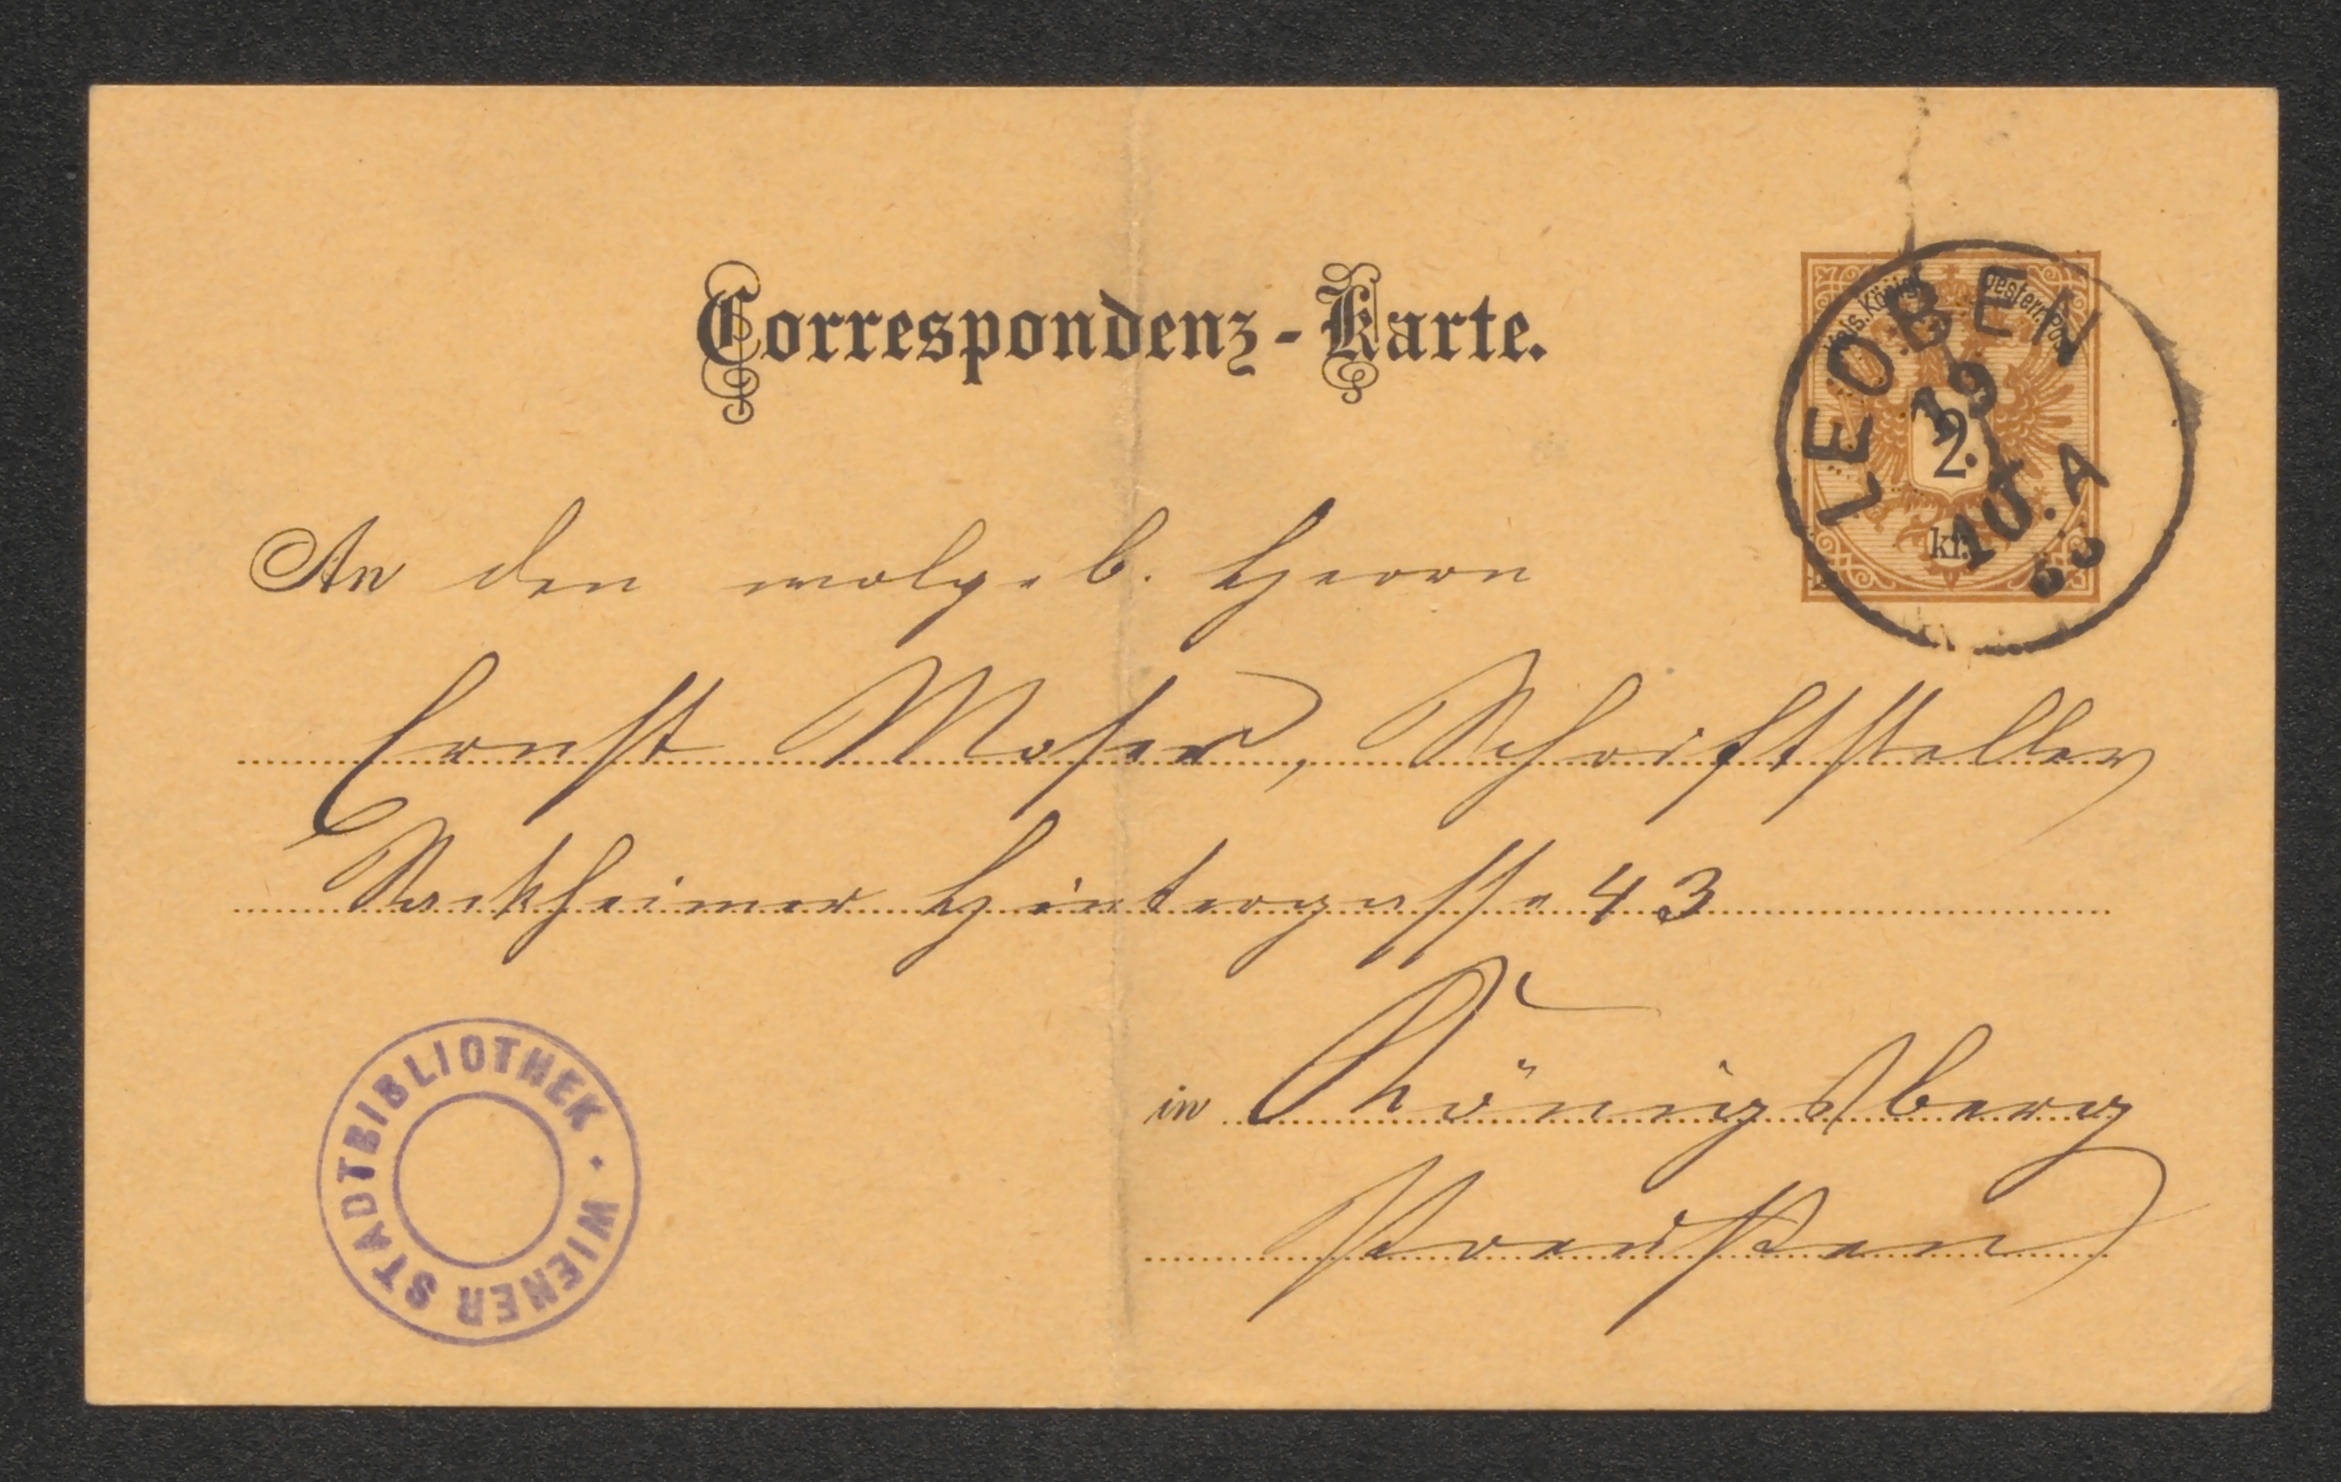 Correspondenz-Karte.
Kais. Königl. Oesterr. Post
2
kr.
LEOBEN
19
10. A
An den wolgeb. Herrn
Ernst Moser, Schriftsteller
Sackheimer Hintergasse 43
in Königsberg
Preußen
WIENER STADTBIBLIOTHEK ·